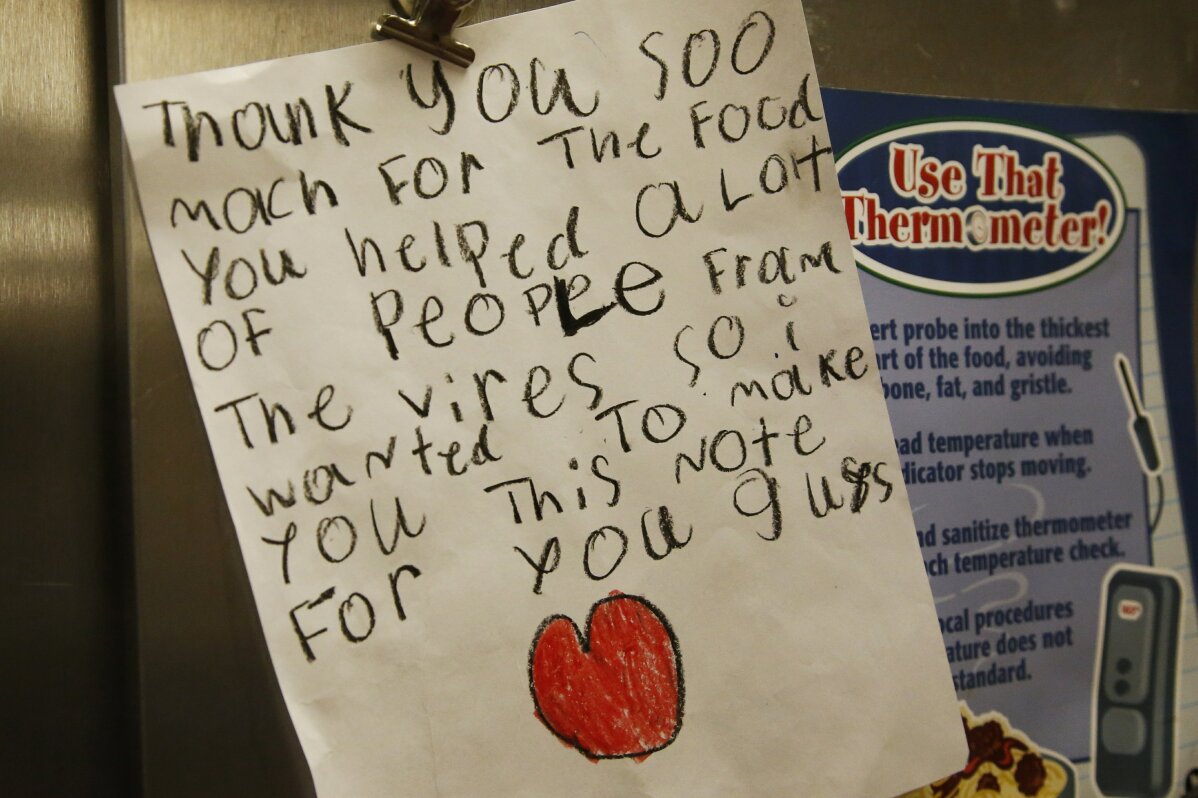 Thank you soo
mach for The Food
you helped a Loit
OF PeopLe From
The vires so i
wanted To make
you This Note
For you guys
Use That
Thermometer!
ert probe into the thickest
rt of the food, avoiding
bone, fat, and gristle.
ad temperature when
dicator stops moving.
nd sanitize thermometer
ch temperature check.
cal procedures
ature does not
standard.